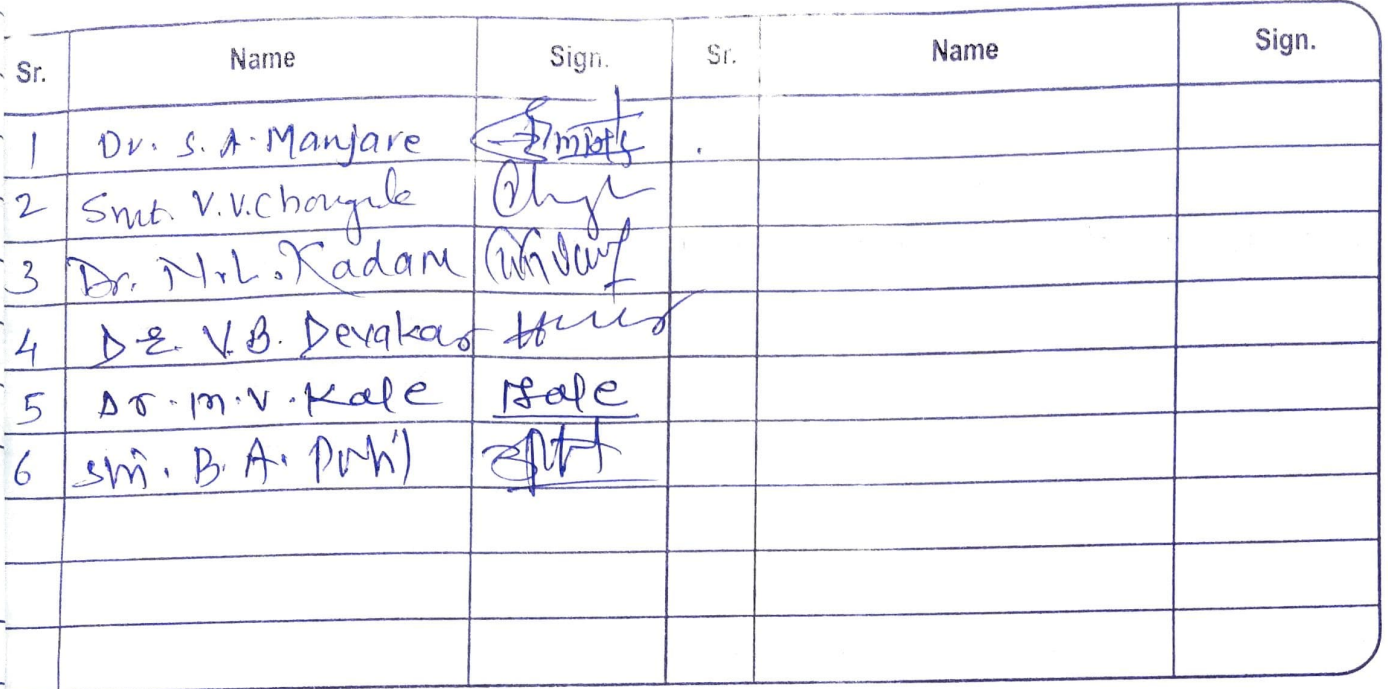 Sr. Name Sign. Sr. Name Sign.
1 Dr. S. A. Manjare
2 Smt. V.V. Chougule
3 Dr. N.L. Kadam
4 Dr. V.B. Devakar
5 Dr. M.V. Kale Kale
6 Shri. B. A. Patil